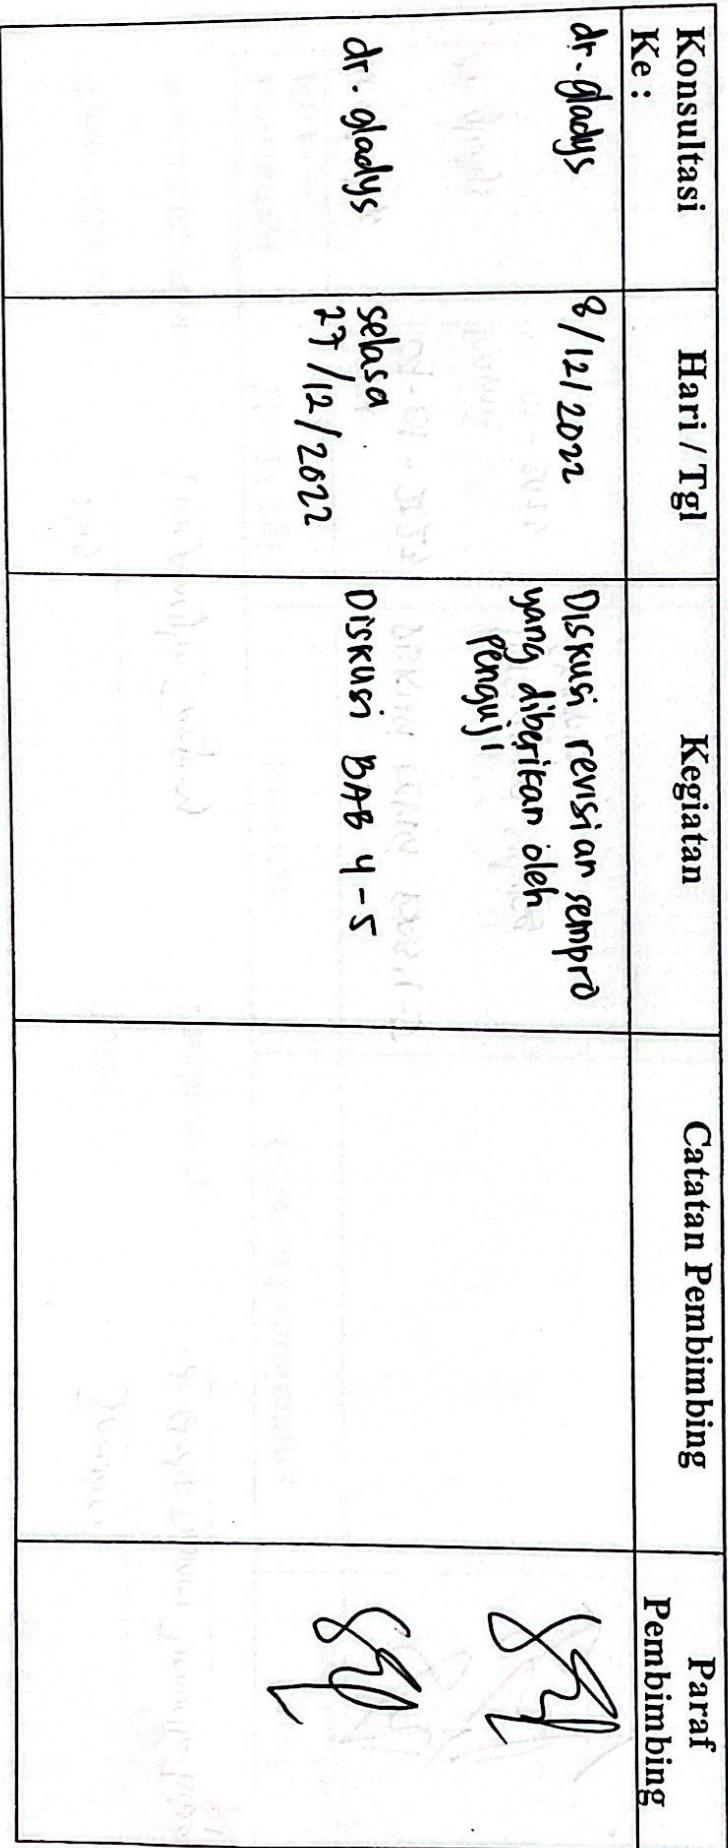 Konsultasi
Ke :
Hari / Tgl
Kegiatan
Catatan Pembimbing
Paraf
Pembimbing
dr. gladys
8/12/2022
Diskusi revisian sempro
yang diberikan oleh
Penguji
dr. gladys
selasa
27/12/2022
Diskusi BAB 4-5